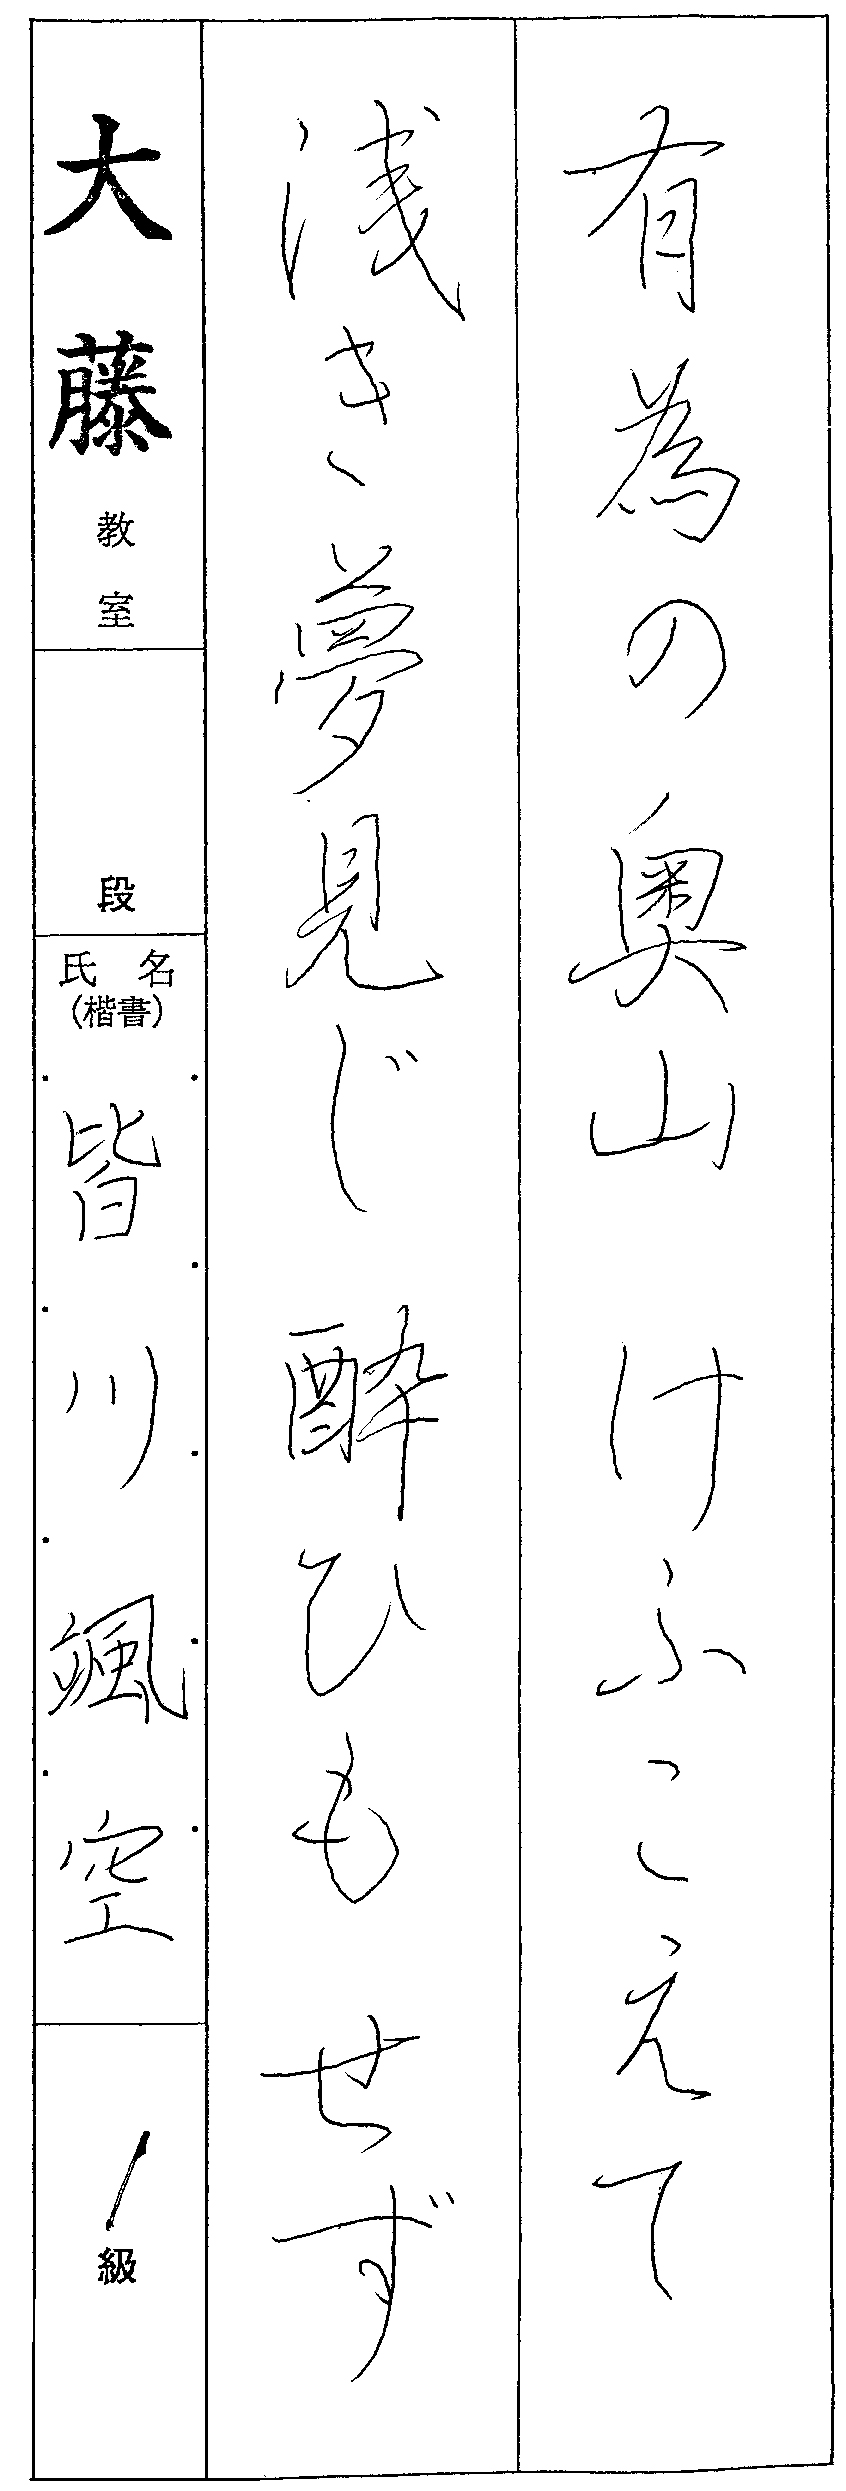 有為の奥山 けふこえて
浅き夢見じ 酔ひもせず
大藤教室
段
氏名
(楷書)
皆川颯空
1級